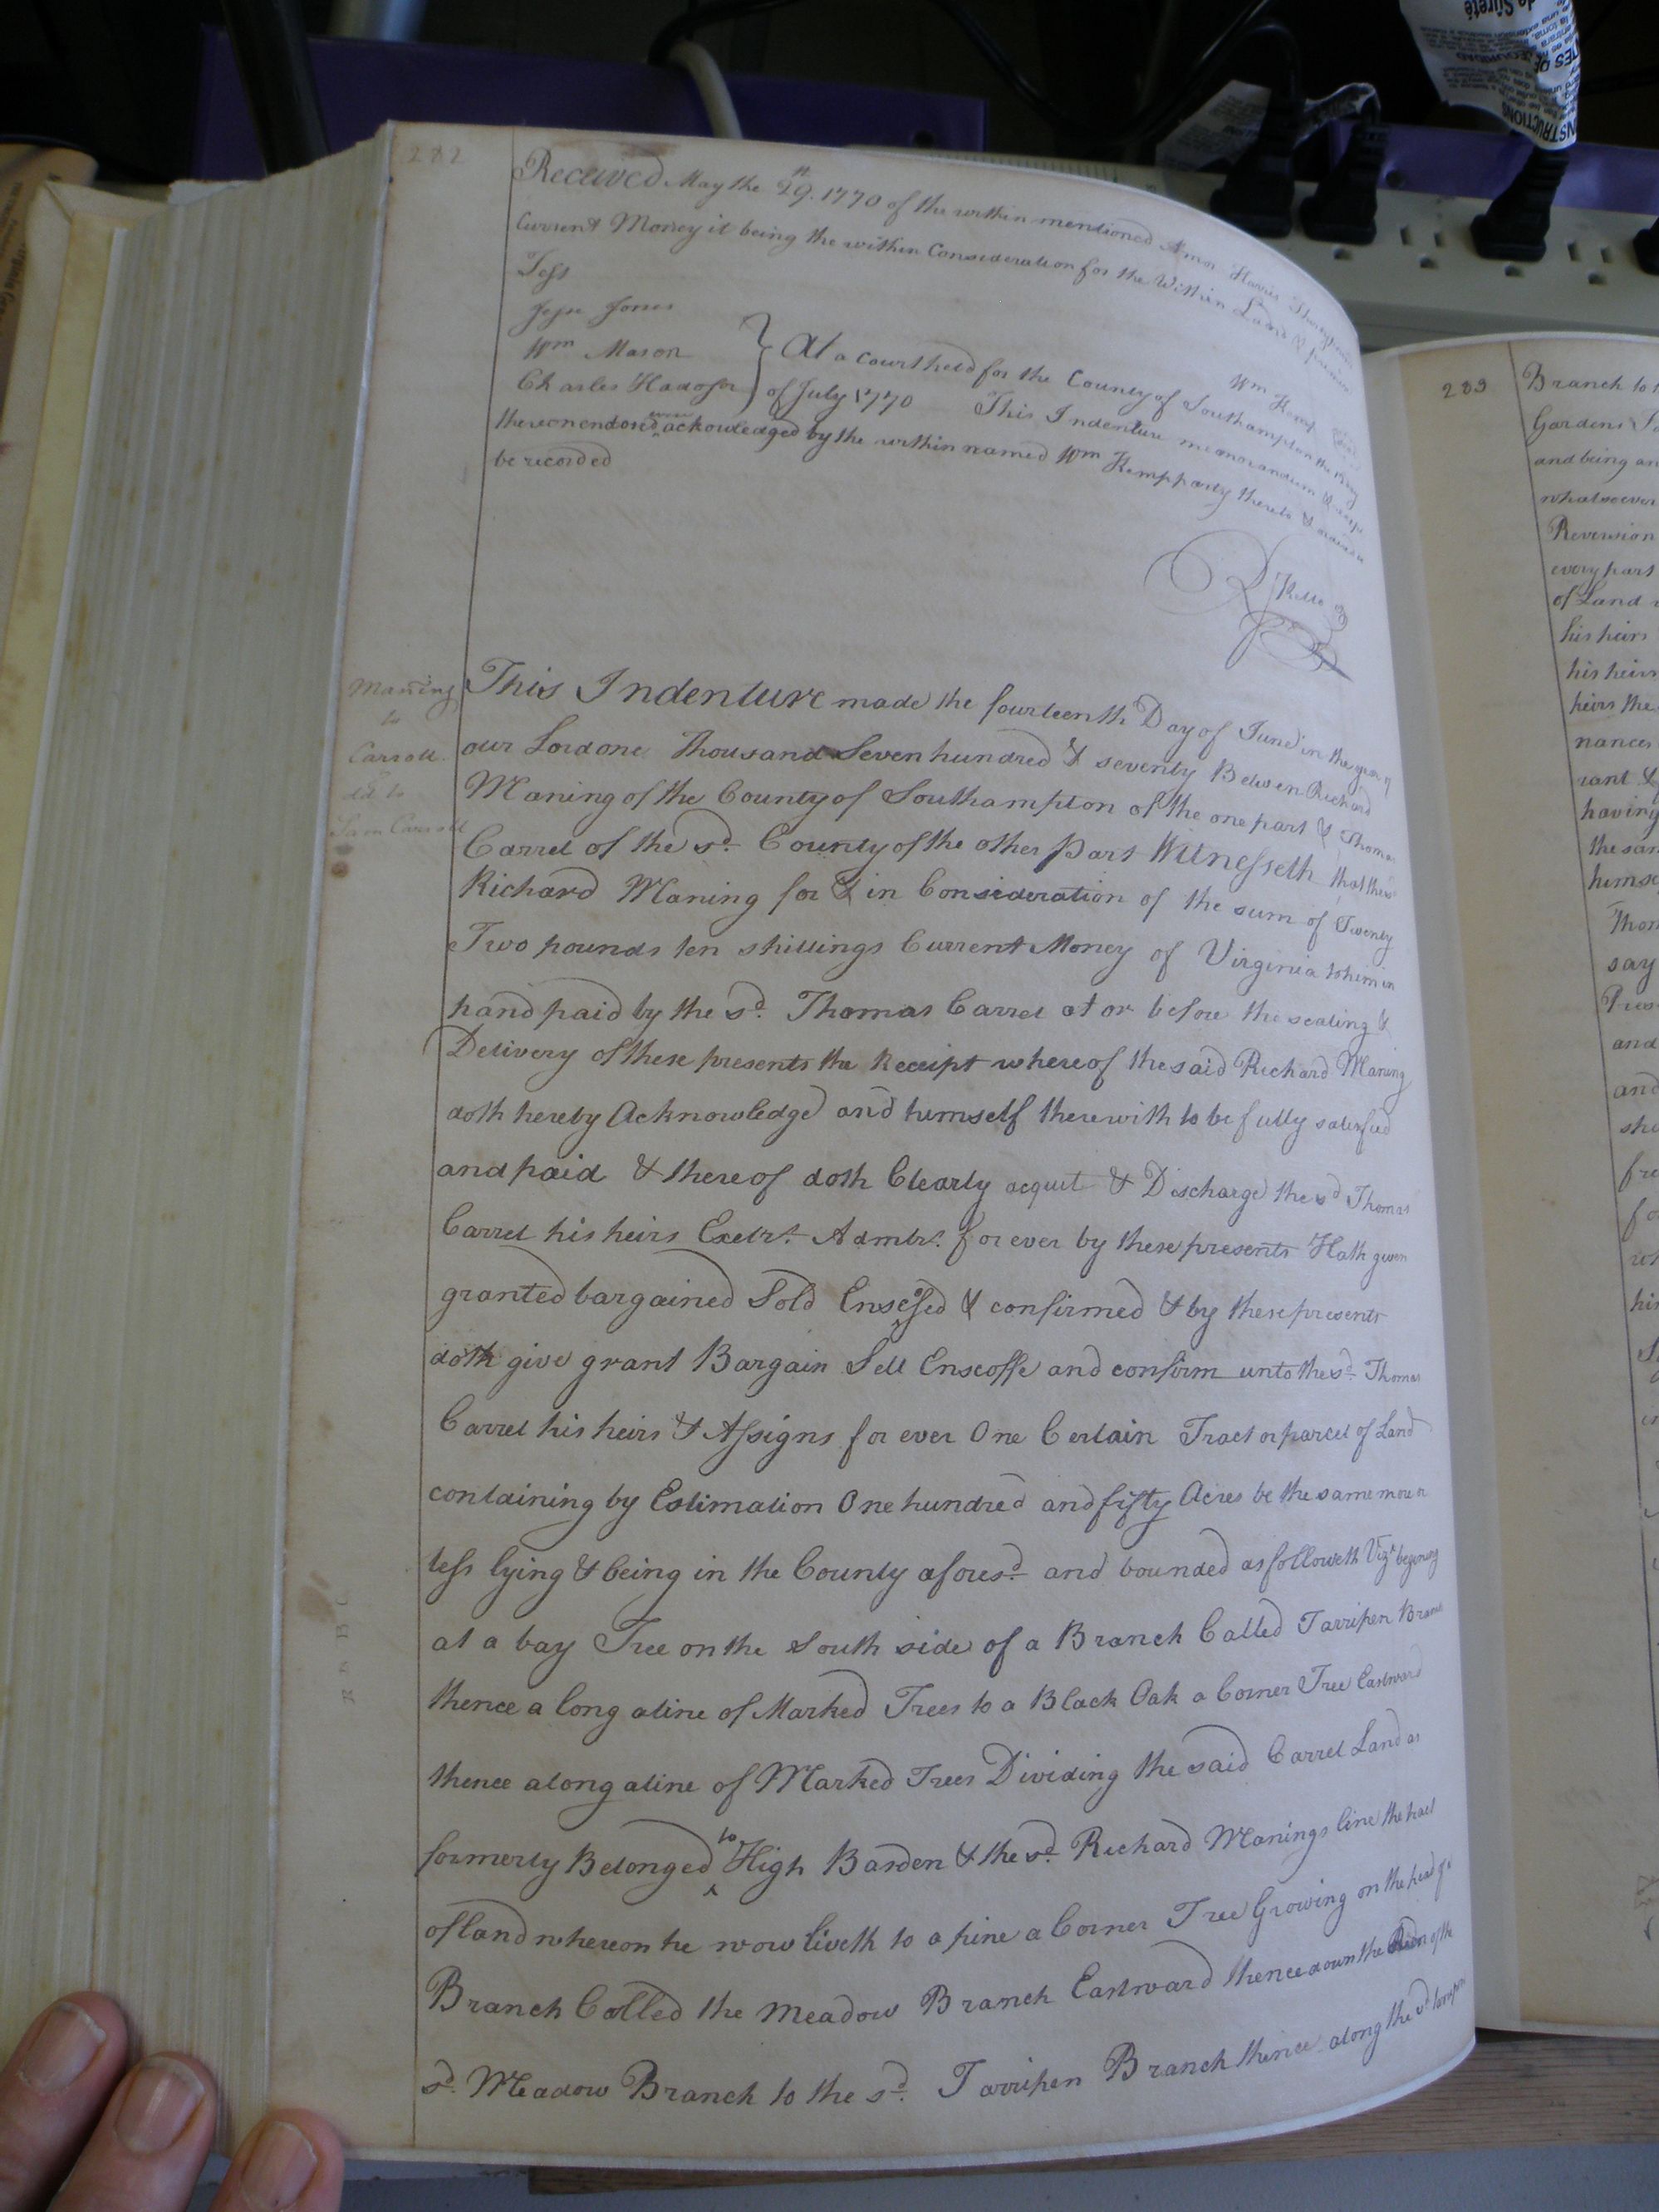 282
Received May the 29th. 1770 of the within mentioned Amos Harris
Current Money it being the within Consideration for the Within Land &
Test
Jesse Jones
Wm Mason
Charles
Wm Kemp
At a Court held for the County of Southampton on the
of July 1770 This Indenture memorandum &
thereon endorsd were ackowledged by the within named Wm Kemp party thereto & ordered to
be recorded
Maning
to
Carroll.
Dd to
Sam Carroll
This Indenture made the fourteenth Day of June in the year of
our Lord one Thousand Seven hundred & seventy Betwen Richard
Maning of the County of Southampton of the one part & Thomas
Carrel of the sd. County of the other part Witnesseth that the sd
Richard Maning for & in Consideration of the sum of Twenty
Two pounds ten shillings Current Money of Virginia to him in
hand paid by the sd. Thomas Carrel at or before the sealing &
Delivery of these presents the Receipt whereof the said Richard Maning
doth hereby Acknowledge and himself therewith to be fully satisfied
and paid & thereof doth Clearly acquit & Discharge the sd Thomas
Carrel his heirs Exetrs. Admtrs. for ever by these presents Hath given
granted bargained Sold Enseosed & confirmed & by these presents
doth give grant Bargain Sell Enseoffe and confirm unto the sd. Thomas
Carrel his heirs & Assigns for ever One Certain Tract or parcel of Land
containing by Estimation One hundred and fifty Acres be the same more or
less lying & being in the County aforesd. and bounded as followeth Vizt begining
at a bay Tree on the South side of a Branch Called Tarripen Branch
thence a long a line of Marked Trees to a Black Oak a Corner Tree Eastward
thence along a line of Marked Trees Dividing the said Carrel Land as
formerly Belonged to High Barden & the sd. Richard Manings line the tract
of land whereon he now liveth to a pine a Corner Tree Growing on the head of a
Branch Called the Meadow Branch Eastward thence down the Run of the
sd. Meadow Branch to the sd. Tarripen Branch thence along the sd
283
Branch to
Gardens
and being an
whatsoever
Reversion
every part
of Land
his heirs
his heirs
heirs the
nances
rant &
having
the sam
himse
Thom
say
Pres
and
and
sha
fre
fo
his